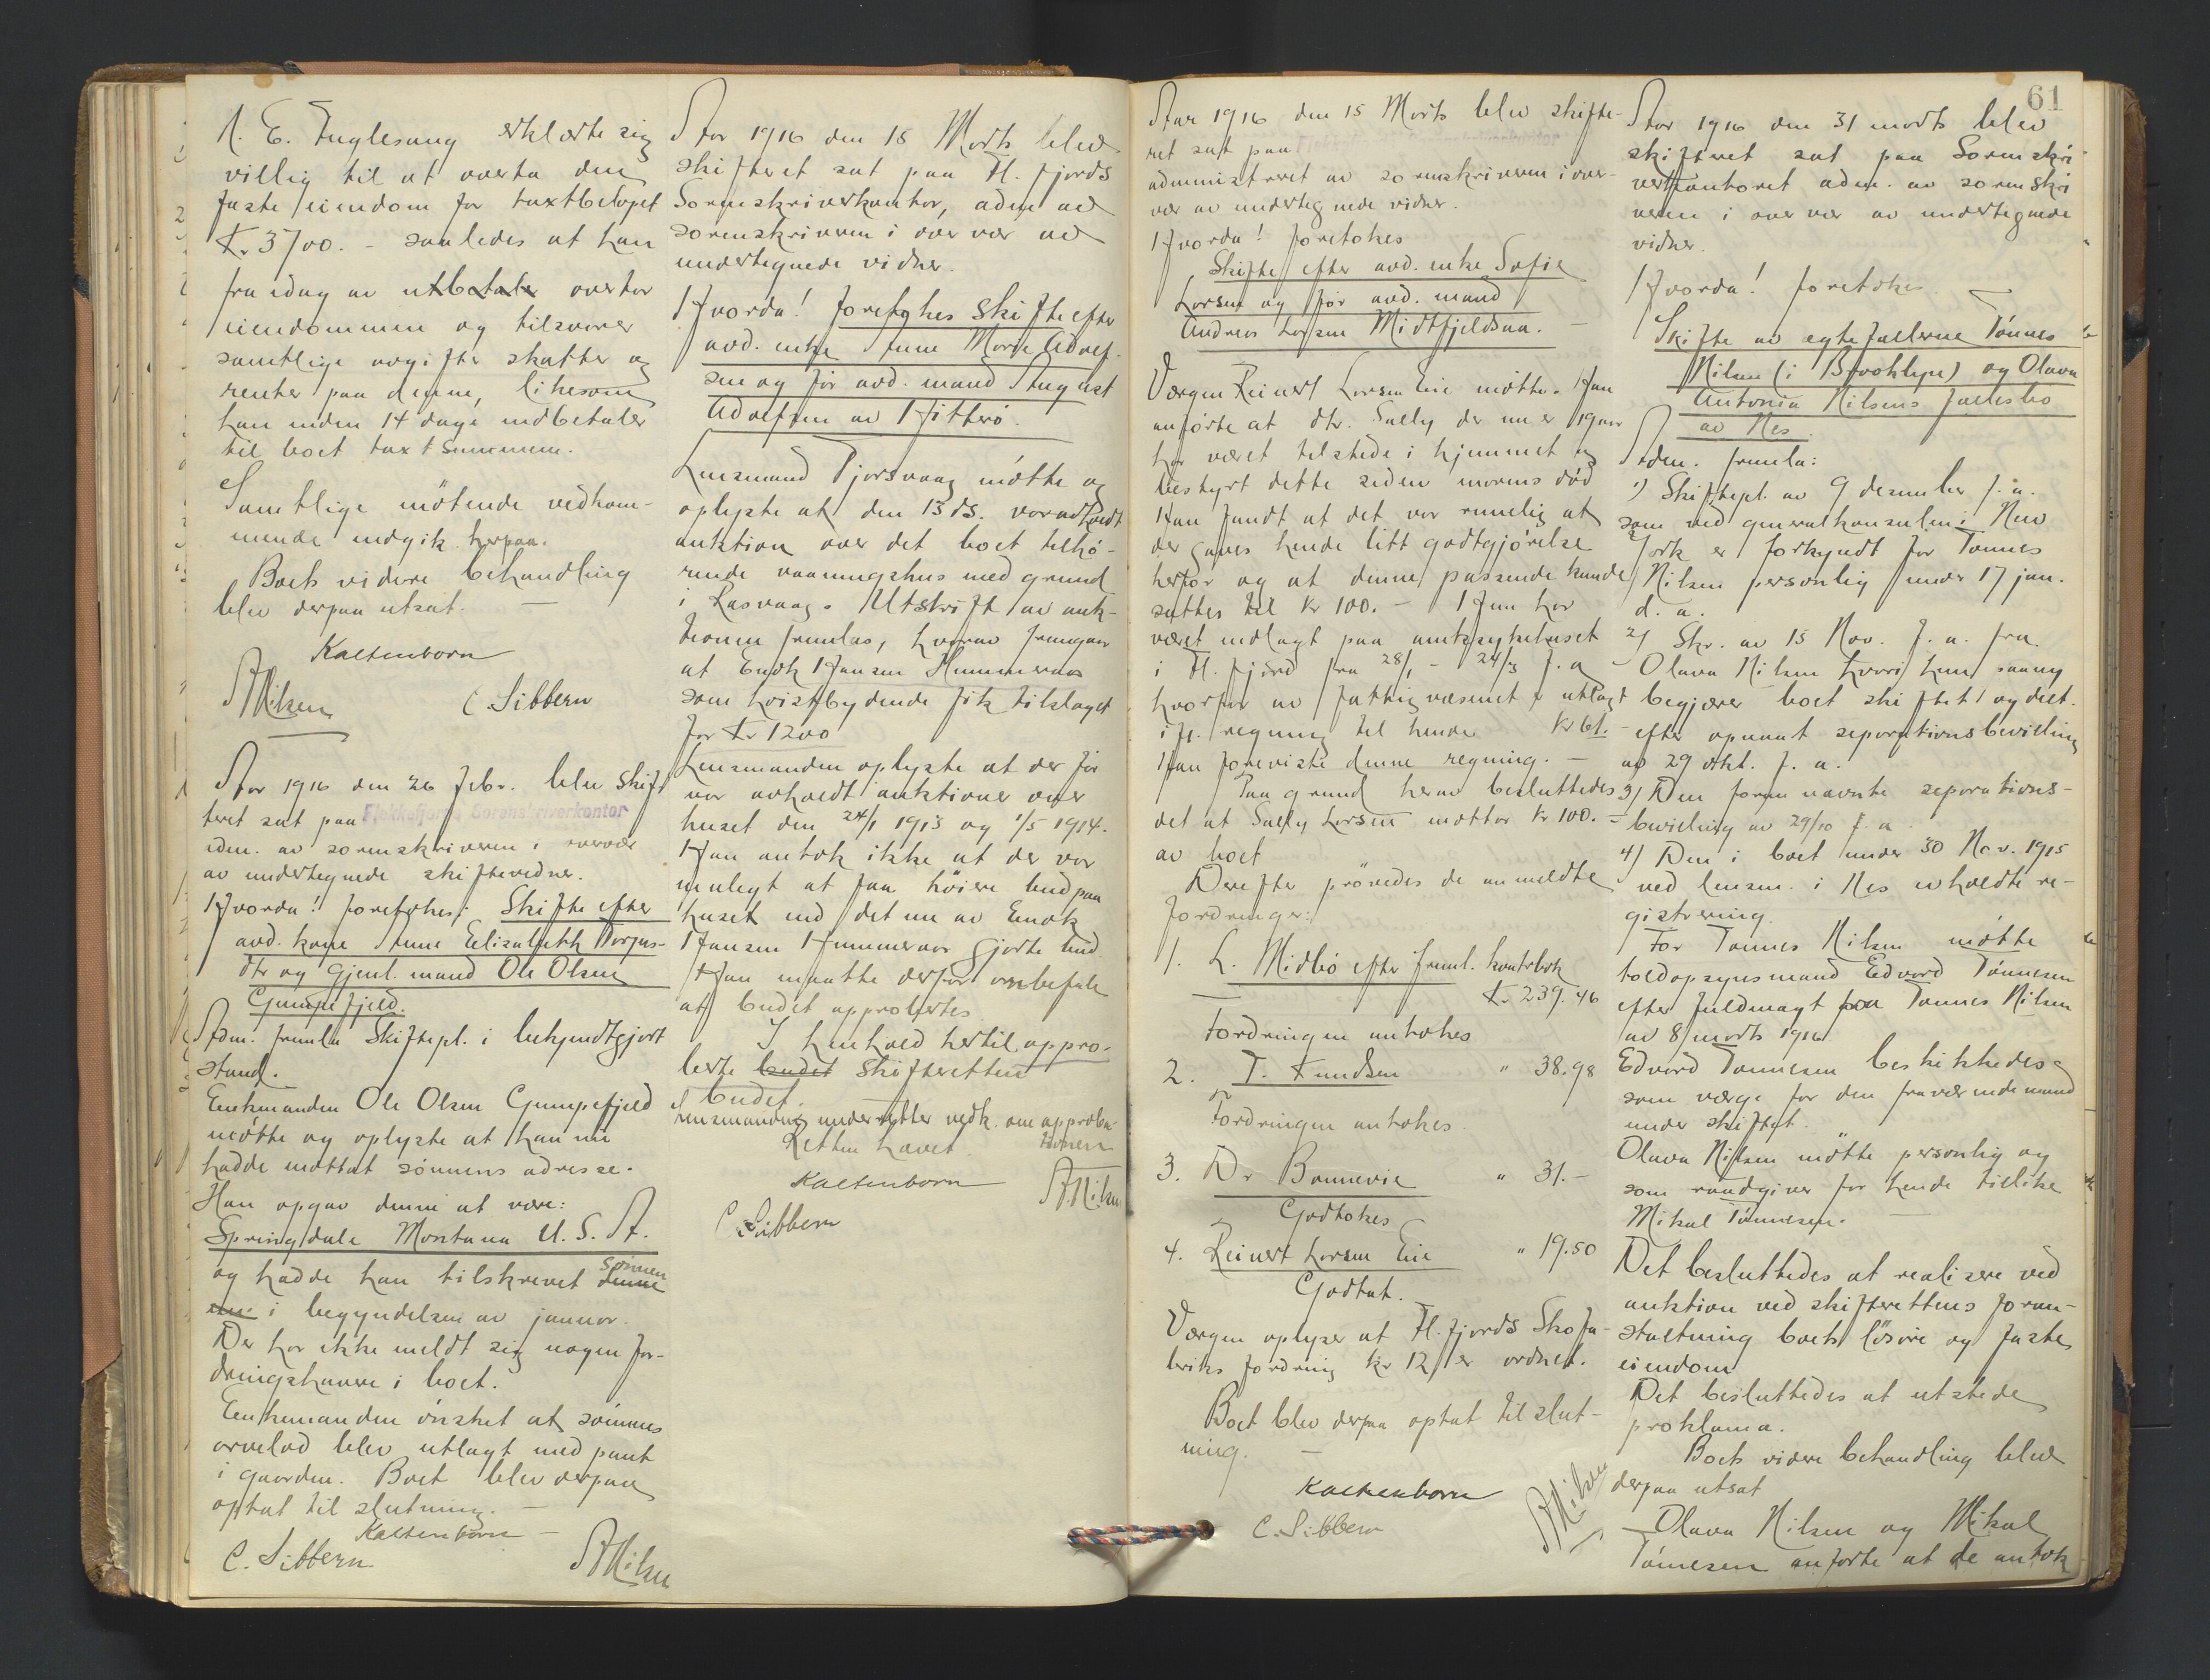 A. E. Fuglesang erklærte sig
villig til at overta den
faste eiendom for taxtbeløpet
Kr 3700.- saaledes at han
fra idag av utbetaler overtar
eiendommen og tilsvarer
samtlige avgifter skatter og
renter paa denne, likesom
han inden 14 dage indbetaler
til boet taxtsummen.
Samtlige møtende vedkom-
mende indgik herpaa.
Boets videre behandling
blev derpaa utsat. —
Kaltenborn
A Nilsen C Sibbern
Aar 1916 den 26 febr. blev skift
teret sat paa Flekkefjords Sorenskriverkontor
adm. av sorenskriveren i overvær
av undertegnede skiftevidner.
Hvorda! foretokes: Skifte efter
avd. kone Anne Elisabeth Torjus-
dtr og gjenl. mand Ole Olsen
Gumpefjeld.
Adm. fremla Skiftepl. i bekjendtgjort
stand.
Enkemanden Ole Olsen Gumpefjeld
møtte og oplyste at han nu
hadde mottat sønnens adresse.
Han opgav denne at være:
Springdale Montana U. S. A.
og hadde han tilskrevet denne sønnen
i begyndelsen av januar.
Der har ikke meldt sig nogen for-
dringshavere i boet.
Enkemanden ønsket at sønnens
arvelod blev utlagt med pant
i gaarden. Boet blev derpaa
optat til slutning. —
Kaltenborn —
C. Sibbern A Nilsen
Aar 1916 den 15 Marts blev
skifteret sat paa Fl. fjords
Sorenskriverkontor, adm av
sorenskriveren i overvær av
undertegnede vidner.
Hvorda! foretokes Skifte efter
avd. enke Anne Marie Adolf-
sen og før avd. mand August
Adolfsen av Hitterø.
Lensmand Tjorsvaag møtte og
oplyste at den 13 ds. var avholdt
auktion over det boet tilhø-
rende vaaningshus med grund
i Rasvaag. Utskrift av auk-
tionen fremlas, hvorav fremgaar
at Enok Hansen Hummernes
som høistbydende fik tilslaget
for Kr 1200
Lensmanden oplyste at der før
var avholdt auktioner over
huset den 24/1 1913 og 1/5 1914.
Han antok ikke at der var
mulegt at faa høiere bud paa
huset end det nu av Enok
Hansen Hummernes gjorte bud.
Han maatte derfor anbefale
at budet approbertes
I henhold hertil appro-
berte budet Skifteretten
budet.
Lensmanden underretter vedk. om approba-
tionen
Retten hævet
Kaltenborn
C. Sibbern A Nilsen
61
Aar 1916 den 15 Marts blev skifte-
ret sat paa
administreret av sorenskriveren i over-
vær av undertegnede vidner.
Hvorda! foretokes
Skifte efter avd. enke Sofie
Larsen og før avd. mand
Andreas Larsen Midtfjeldsaa. —
Værgen Reinert Larsen Eie møtte. Han
anførte at dtr. Sally der nu er 19 aar
har været tilstede i hjemmet og
bestyrt dette siden morens død
Han fandt at det var rimelig at
der gaves hende litt godtgjørelse
herfor og at denne passende kunde
sættes til kr 100. — Hun har
været indlagt paa amtssykehuset
i Fl. fjord fra 28/1 - 24/3 f. a
hvorfor av fattigvæsenet er utlagt
ifl. regning til hende kr 61.-
Han foreviste denne regning. —
Paa grund herav besluttedes
det at Sally Larsen mottar kr 100. -
av boet
Derefter prøvedes de anmeldte
fordringer:
1. L. Midbø efter freml. kontrabok
Kr 239.46
Fordringen antokes
2. T. Knudsen " 38.98
Fordringen antokes.
3. Dr Bonnevie " 31.-
Godtokes
4. Reinert Larsen Eie " 19.50
Godtat.
Værgen oplyser at Fl. fjords Skofa-
briks fordring kr 12 er ordnet.
Boet blev derpaa optat til slut-
ning. —
Kaltenborn
C. Sibbern A Nilsen
Aar 1916 den 31 marts blev
skifteret sat paa Sorenskri-
verkontoret adm. av sorenskri
veren i overvær av undertegnede
vidner.
Hvorda! foretokes
Skifte av egtefællerne Tønnes
Nilsen (i Brooklyn) og Olava
Antonia Nilsens fællesbo
av Nes.
Adm. fremla:
1) Skiftepl. av 9 desember f. a.
som ved generalkonsulen i New
York er forkyndt for Tønnes
Nilsen personlig under 17 jan.
d. a.
2) Skr. av 15 Nov. f. a. fra
Olava Nilsen hvori hun saang
begjærer boet skiftet og delt.
efter opnaat separationsbevilling
av 29 okt. f. a.
3) Den foran nævnte separations-
bevilling av 29/10 f. a.
4) Den i boet under 30 Nov. 1915
ved lensm. i Nes avholdte re-
gistrering.
For Tønnes Nilsen møtte
toldopsynsmand Edvard Tønnesen
efter fuldmagt fra Tønnes Nilsen
av 8 marts 1916.
Edvard Tønnesen beskikkedes
som værge for den fraværende mand
under skiftet.
Olava Nilsen møtte personlig og
som raadgiver for hende tillike
Mikal Tønnesen. —
Det besluttedes at realisere ved
auktion ved skifterettens foran-
staltning boets løsøre og faste
eiendom
Det besluttedes at utstede
proklama.
Boets videre behandling blev
derpaa utsat
Olava Nilsen og Mikal
Tønnesen anførte at de antok